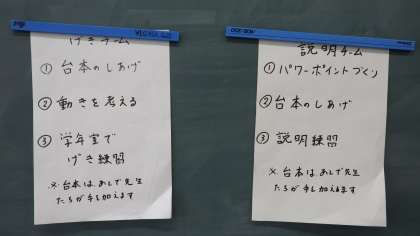 げきチーム
① 台本のしあげ
② 動きを考える
③ 学年室で
げき練習
※台本は、あしで先生
たちが手を加えます
説明チーム
① パワーポイントづくり
② 台本のしあげ
③ 説明練習
※ 台本は、あしで先生
たちが手を加えます